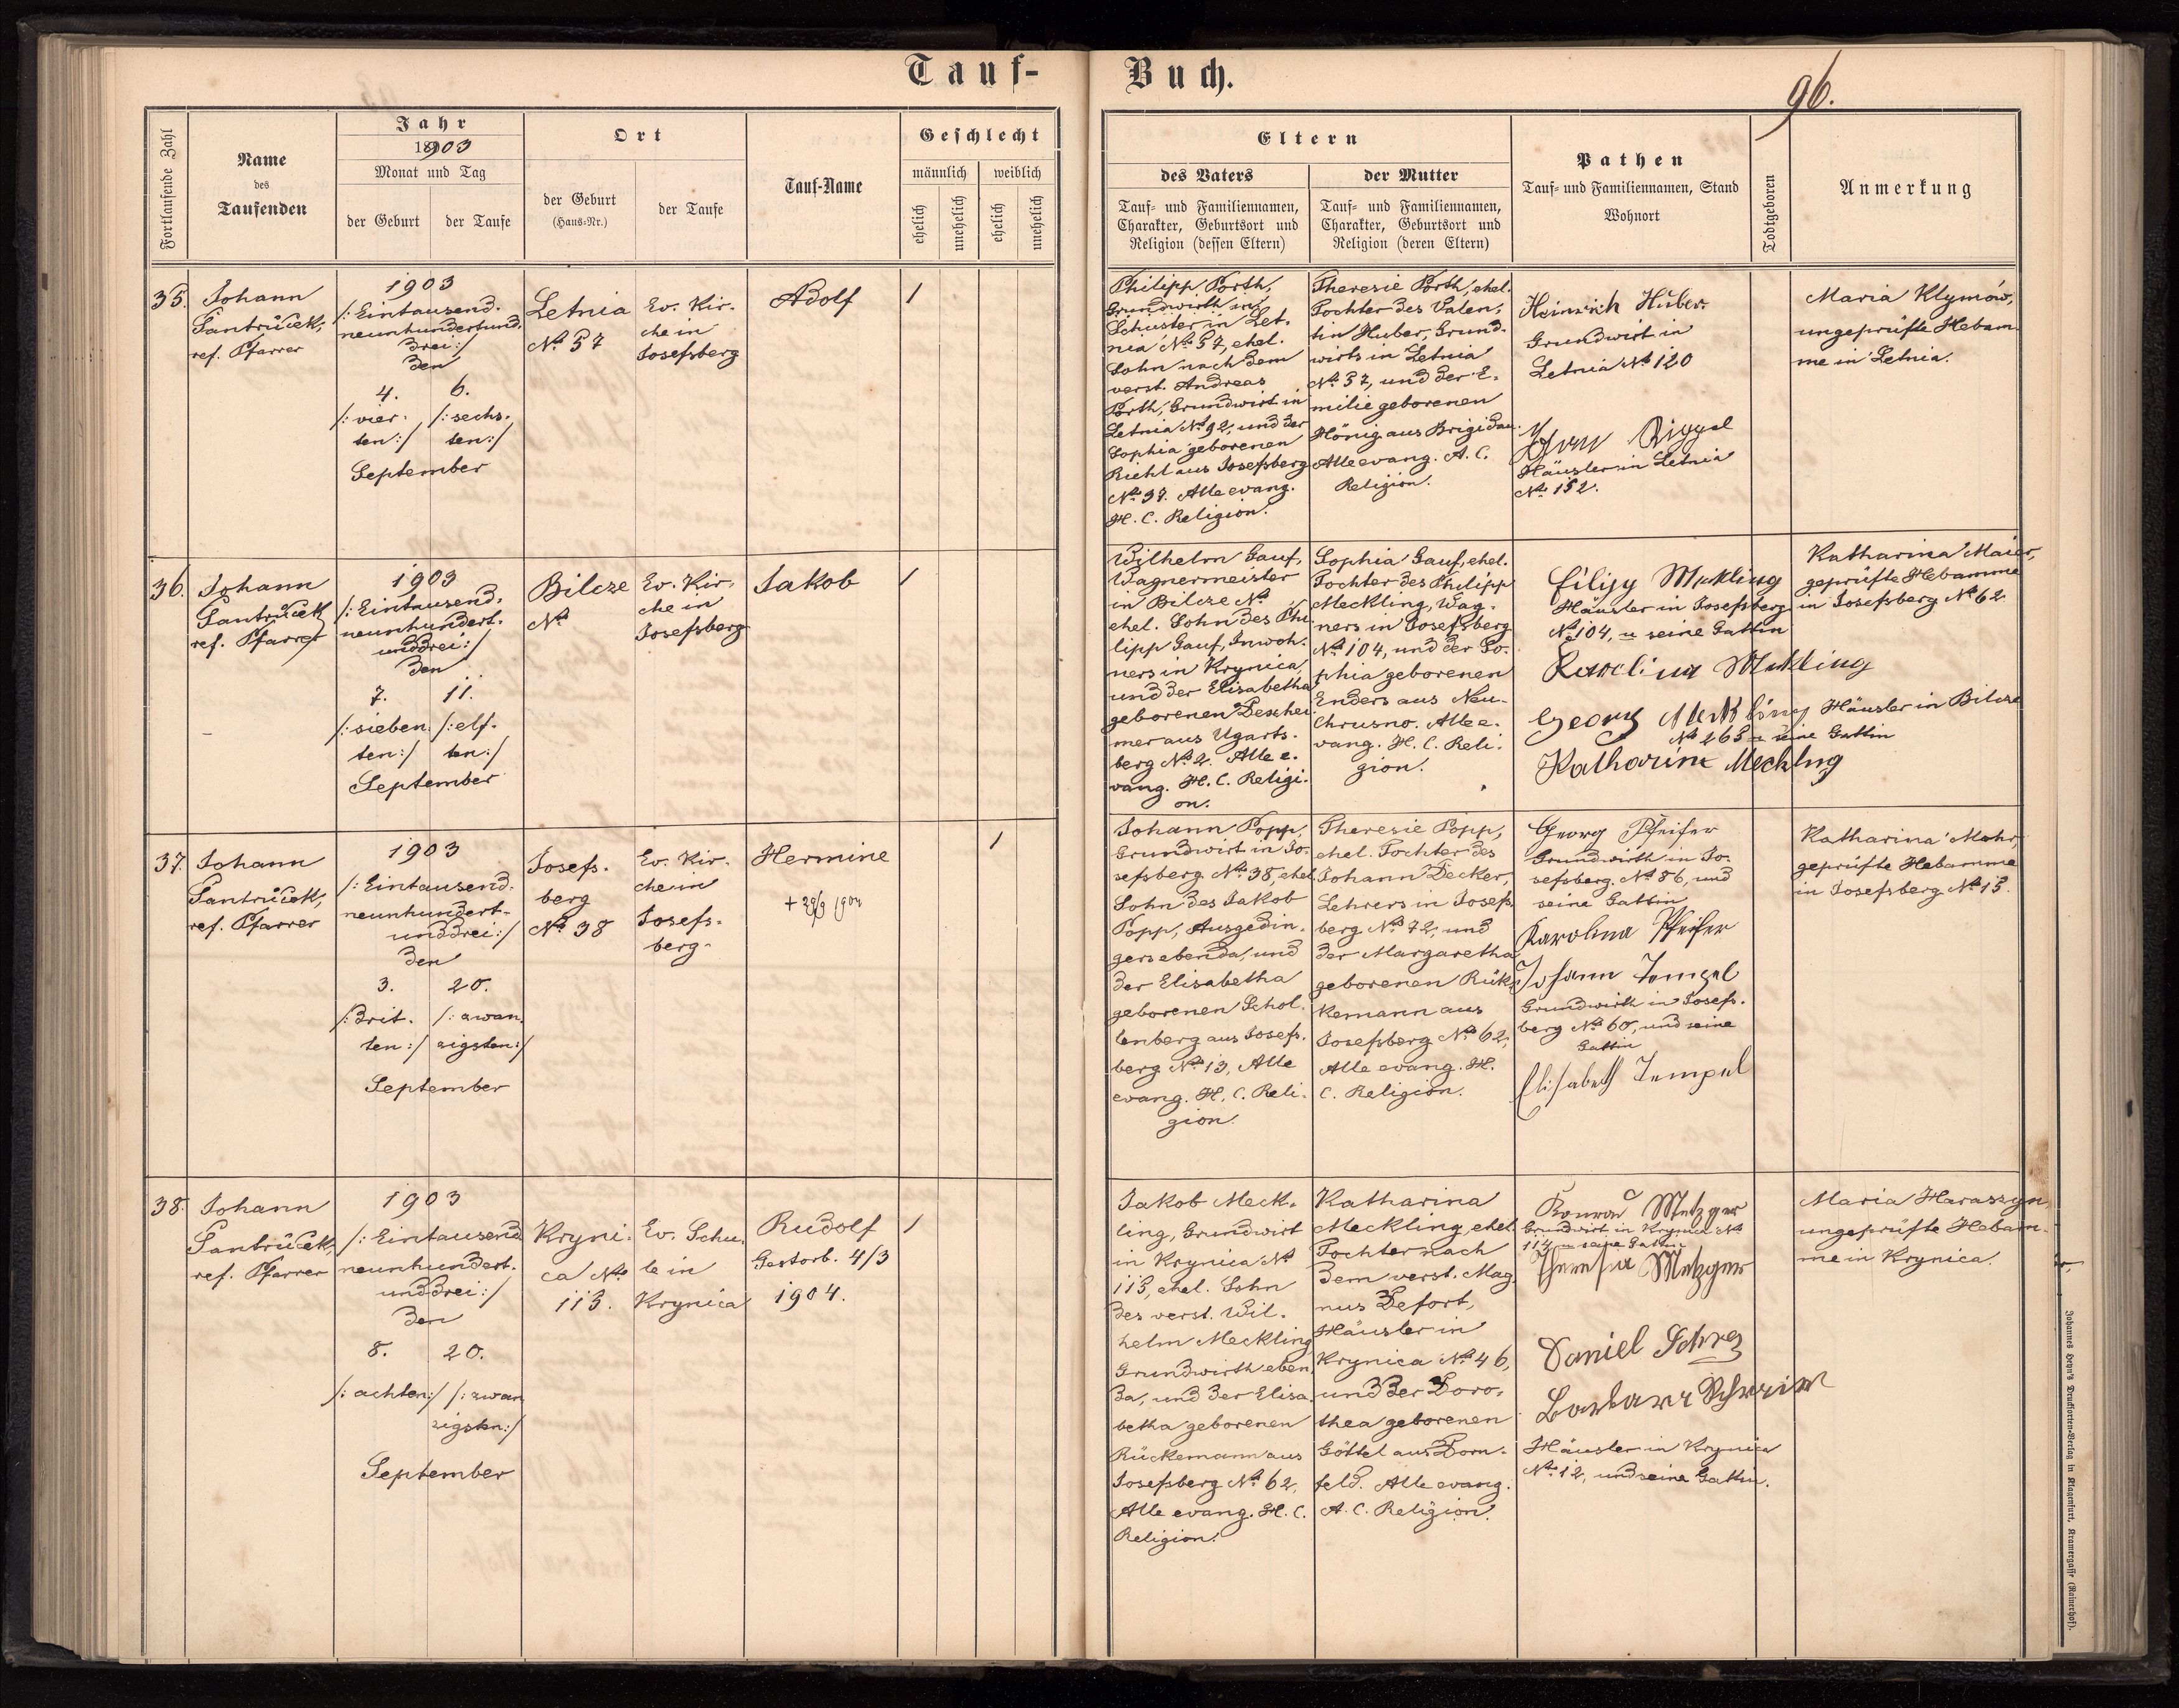 Tauf-
Buch.
96.
Fortlaufende Zahl
Name
des
Taufenden
Jahr
1903
Monat und Tag
der Geburt
der Taufe
Ort
der Geburt
(Haus-Nr.)
der Taufe
Tauf-Name
Geschlecht
männlich
weiblich
ehelich
unehelich
ehelich
unehelich
Eltern
des Vaters
Tauf- und Familiennamen,
Charakter, Geburtsort und
Religion (dessen Eltern)
der Mutter
Tauf- und Familiennamen,
Charakter, Geburtsort und
Religion (deren Eltern)
Pathen
Tauf- und Familiennamen, Stand
Wohnort
Todtgeboren
Anmerkung
35.
Johann
Santrůček,
ref. Pfarrer
1903
/: Eintausend-
neunhundertund-
drei :/
den
4.
/: vier-
ten :/
6.
/: sechs-
ten :/
September
Letnia
No 57
Ev. Kir-
che in
Josefsberg
Adolf
1
Philipp Porth,
Grundwirth und
Schuster in Let-
nia No 57, ehel.
Sohn nach dem
verst. Andreas
Porth, Grundwirt in
Letnia No 92, und der
Sophia geborenen
Riehl aus Josefsberg
No 37. Alle evang.
H. C. Religion.
Theresie Porth, ehel.
Tochter des Valen-
tin Huber, Grund-
wirts in Letnia
No 57, und der E-
milie geborenen
Hönig aus Brigidau.
Alle evang. A. C.
Religion.
Heinrich Huber
Grundwirt in
Letnia No 120
Häusler in Letnia
No 152.
Maria Klymów,
ungeprüfte Hebam-
me in Letnia.
36.
Johann
Santrůček
ref. Pfarrer
1903
/: Eintausend-
neunhundert-
unddrei :/
den
7.
/: sieben-
ten :/
11.
/: elf-
ten :/
September
Bilcze
No
Ev. Kir-
che in
Josefsberg
Jakob
1
Wilhelm Gauf,
Wagnermeister
in Bilcze No
ehel. Sohn des Phi-
lipp Gauf, Inwoh-
ners in Krynica,
und der Elisabetha
geborenen Deschei-
mer aus Ugarts-
berg No 2. Alle e-
vang. H. C. Religi-
on.
Sophia Gauf, ehel.
Tochter des Philipp
Meckling, Wag-
ners in Josefsberg
No 104, und der So-
phia geborenen
Enders aus Neu-
Chrusno. Alle e-
vang. H. C. Reli-
gion.
Filipp Meckling
Häusler in Josefsberg
No 104, u seine Gattin
Karolina Meckling
Georg Meckling Häusler in Bilcze
No 263 u seine Gattin
Katharine Meckling
Katharina Maier,
geprüfte Hebamme
in Josefsberg No 62
37.
Johann
Santrůček,
ref. Pfarrer
1903
/: Eintausend-
neunhundert-
unddrei :/
den
3.
/: drit-
ten :/
20.
/: zwan-
zigsten :/
September
Josefs-
berg
No 38
Ev. Kir-
che in
Josefs-
berg.
Hermine
1
Johann Popp,
Grundwirt in Jo-
sefsberg No 38, ehel.
Sohn des Jakob
Popp, Ausgedin-
gers ebenda, und
der Elisabetha
geborenen Schol-
lenberg aus Josefs-
berg No 13, Alle
evang. H. C. Reli-
gion.
Theresie Popp,
ehel. Tochter des
Johann Decker,
Lehrers in Josefs-
berg No 72, und
der Margaretha
geborenen Rük-
kemann aus
Josefsberg No 62,
Alle evang. H.
C. Religion.
Georg Pfeifer
Grundwirth in Jo-
sefsberg No 86, und
seine Gattin
Karolina Pfeifer
Johann Tempel
Grundwirth in Josefs-
berg No 60, und seine
Gattin
Elisabeth Tempel
Katharina Mohr,
geprüfte Hebamme
in Josefsberg No 13.
38.
Johann
Santrůček,
ref. Pfarrer
1903
/: Eintausend-
neunhundert-
unddrei :/
den
8.
/: achten :/
20.
/: zwan-
zigsten :/
September
Kryni-
ca No
113.
Ev. Schu-
le in
Krynica
Rudolf
Gestorb. 4/3
1904.
1
Jakob Meck-
ling, Grundwirt
in Krynica No
113, ehel. Sohn
des verst. Wil-
helm Meckling
Grundwirth eben-
da, und der Elisa-
betha geborenen
Rückemann aus
Josefsberg No 62,
Alle evang. H. C.
Religion.
Katharina
Meckling, ehel.
Tochter nach
dem verst. Mag-
nus Defort,
Häusler in
Krynica No 46,
und der Doro-
thea geborenen
Göttel aus Dorn-
feld. Alle evang.
A. C. Religion.
Konrad Metzger
Grundwirt in Krynica No
114 u seine Gattin
Theresia Metzger
Daniel
Barbara
Häusler in Krynica
No 12, und seine Gattin.
Maria Haraszyn,
ungeprüfte Hebam-
me in Krynica.
Johannes Heyn's Drucksorten-Verlag in Klagenfurt, Kramergasse (Rainerhof).